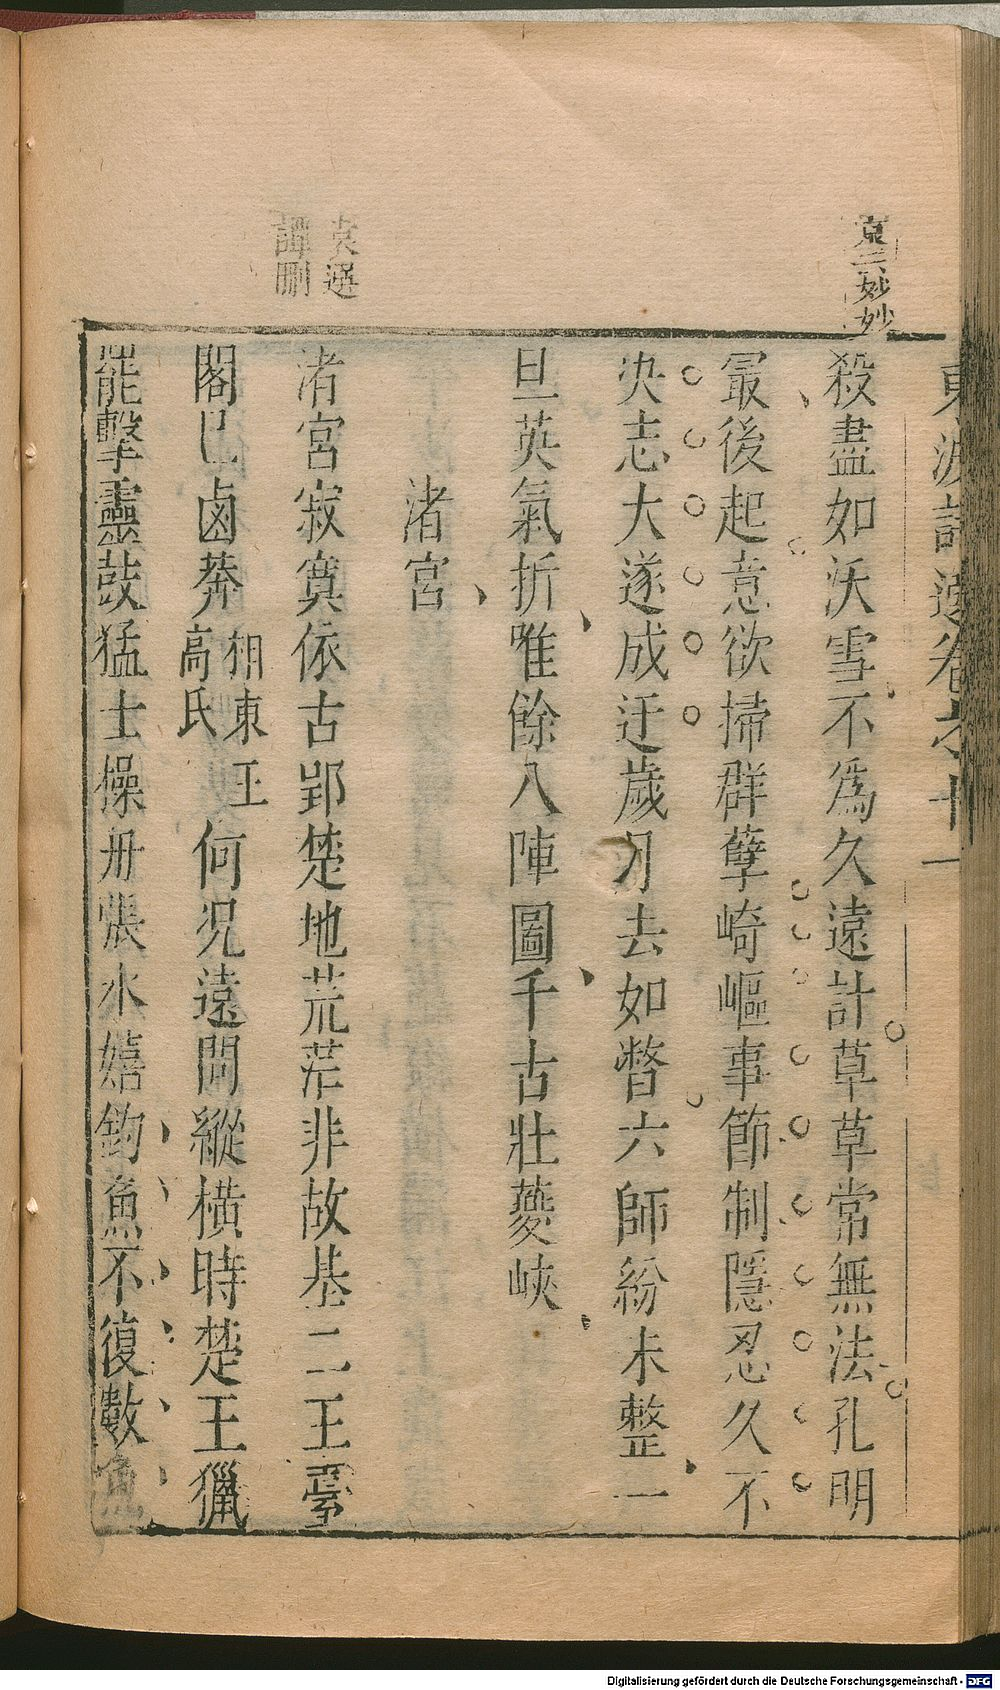 東坡詩選卷之十一
袁云妙妙
殺盡如沃雪不爲久遠計草草常無法孔明
最後起意欲掃群孽崎嶇事節制隱忍久不
决志大遂成迂歲月去如瞥六師紛未整一
旦英氣折唯餘八陣圖千古壯夔峽
渚宮
袁選
譚刪
渚宮寂寞依古郢楚地荒茫非故基二王臺
閣已鹵莽湘東王高氏何况遠問縱橫時楚王獵
罷擊靈鼓猛士操舟張水嬉釣魚不復數魚
Digitalisierung gefördert durch die Deutsche Forschungsgemeinschaft - DFG